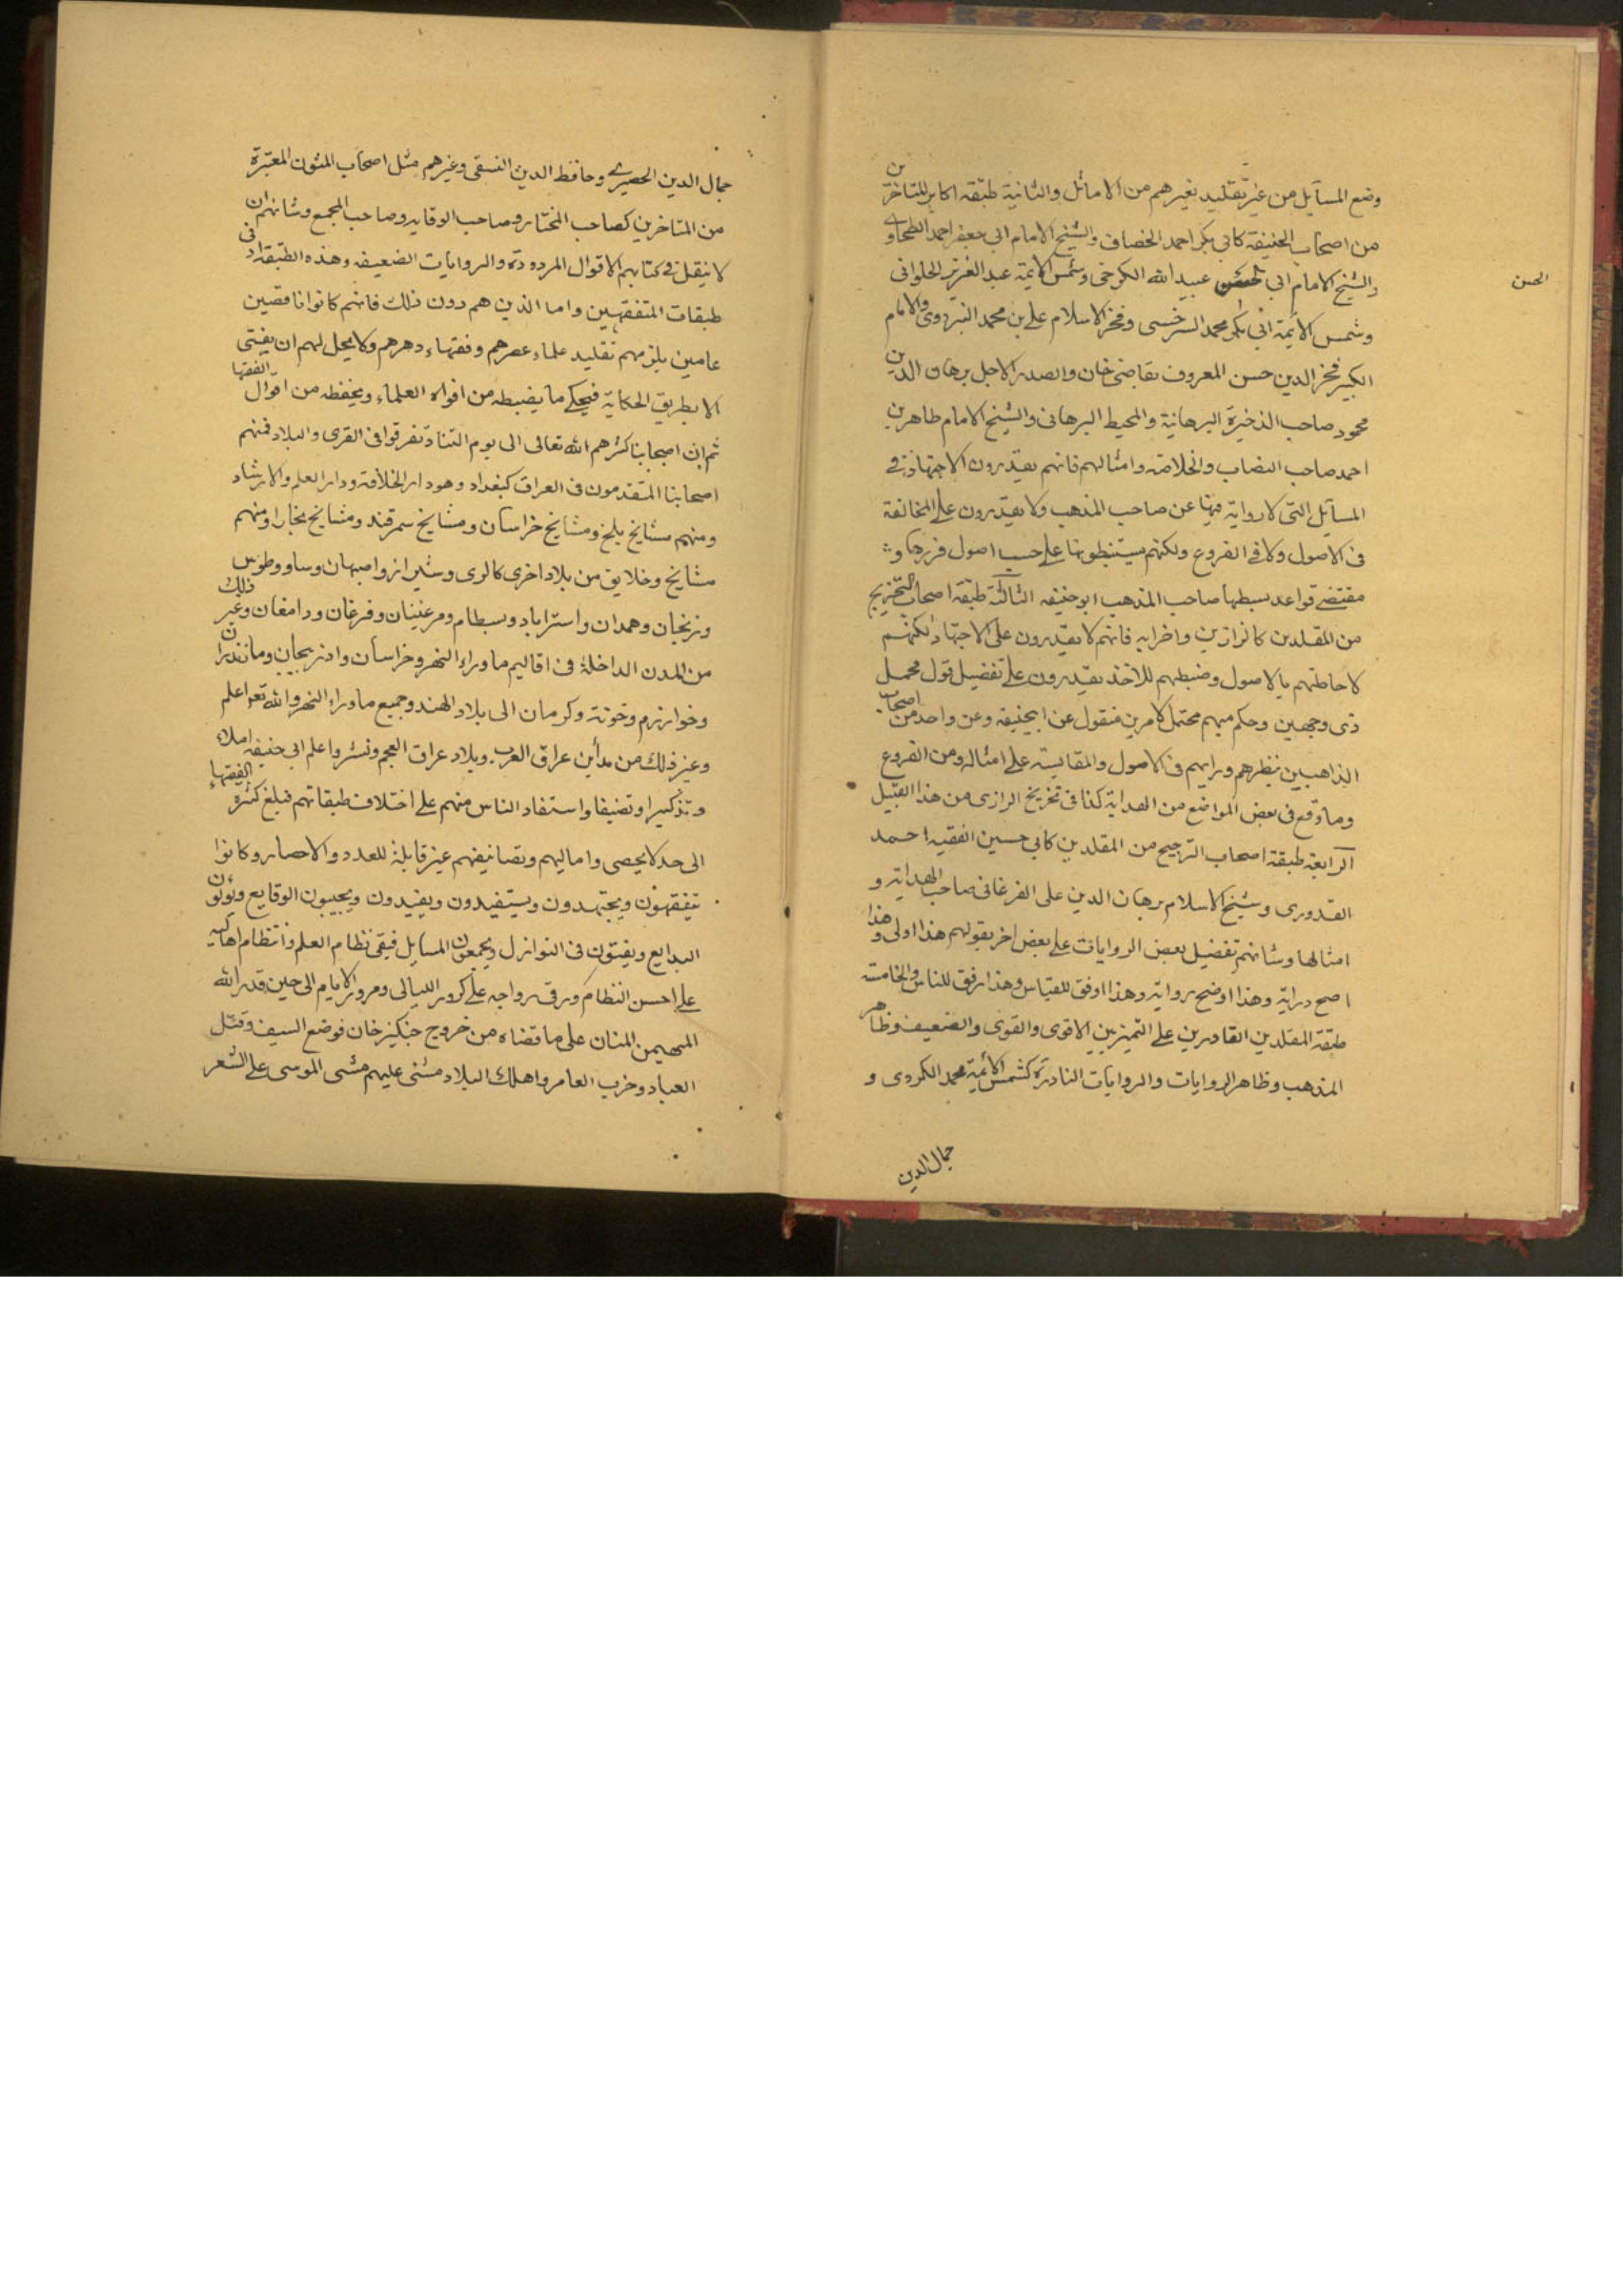 وضع المسآيل من غير تقليد بغيرهم من الاماثل والثانية طبقه اكابر للتاخرين
من اصحاب الحنيفة كابي بكر احمد الخصاف والشيخ الامام ابي جعفر احمد الطحاوي
والشيخ الامام ابي الحسن عبيد الله الكرخى وشمس الائمة عبد العزيز الحلوانى
الحسن
وشمس الائمة ابي بكر محمد السرخسى وفخر الاسلام على بن محمد البزدوى والامام
الكبير فخر الدين حسن المعروف بقاضى خان والصدر الاجل برهان الدين
محمود صاحب الذخيرة البرهانية والمحيط البرهانى والشيخ الامام طاهر بن
احمد صاحب النصاب والخلاصة وامثالهم فانهم يقدرون الاجتهاد فى
المسآيل التى لا رواية فيها عن صاحب المذهب ولا يقدرون على المخالفة
فى الاصول ولا فى الفروع ولكنهم يستنبطونها على حسب اصول قررها و
مقتضى قواعد بسطها صاحب المذهب ابو حنيفه الثالثة طبقه اصحاب التخريج
من المقلدين كالرازى واضرابه فانهم لا يقدرون على الاجتهاد لكنهم
لاحاطتهم بالاصول وضبطهم للاخذ يقدرون على تفضيل قول مجمل
ذى وجهين وحكم مبهم محتمل لامرين منقول عن ابيحنيفه وعن واحد من اصحاب
الذاهبين بنظرهم ورايهم فى الاصول والمقايسة على امثاله ومن الفروع
وما وقع فى بعض المواضع من الهداية كذا فى تخريج الرازى من هذا القبيل
الرابعة طبقة اصحاب الترجيح من المقلدين كابي حسين الفقيه احمد
القدورى وشيخ الاسلام برهان الدين على الفرغانى صاحب الهداية و
امثالها وشانهم تفضيل بعض الروايات على بعض اخر بقولهم هذا اولى وهذا
اصح دراية وهذا اوضح رواية وهذا اوفق للقياس وهذا ارفق للناس والخامسة
طبقة المقلدين القادرين على التميز بين الاقوى والقوى والضعيف وظاهر
المذهب وظاهر الروايات والروايات النادرة كشمس الائمة محمد الكردى و
جمال الدين
جمال الدين الحصيرى وحافظ الدين النسفى وغيرهم مثل اصحاب المتون المعتبرة
من المتاخرين كصاحب المختار وصاحب الوقايه وصاحب المجمع وشانهم ان
لا ينقل فى كتابهم الاقوال المردودة والروايات الضعيفه وهذه الطبقة ادنى
طبقات المتفقهين واما الذين هم دون ذلك فانهم كانوا ناقصين
عامين يلزمهم تقليد علماء عصرهم وفقهاء دهرهم ولا يحل لهم ان يفتى
الا بطريق الحكاية فيحكى ما يضبطه من افواه العلماء ويحفظه من اقوال الفقها
ثم ان اصحابنا كثرهم الله تعالى الى يوم التناد تفرقوا فى القرى والبلاد فمنهم
اصحابنا المتقدمون فى العراق كبغداد وهو دار الخلافة ودار العلم والارشاد
ومنهم مشايخ بلخ ومشايخ خراسان ومشايخ سمرقند ومشايخ بخارا ومنهم
مشايخ وخلايق من بلاد اخرى كالرى وشيراز واصبهان وساو وطوس
وزنجان وهمدان واستراباد وبسطام ومرغينان وفرغان ودامغان وغير ذلك
من المدن الداخلة فى اقاليم ماوراء النهر وخراسان واذربيجان ومازندران
وخوارزم وخوته وكرمان الى بلاد الهند وجميع ماوراء النهر والله تعو اعلم
وغير ذلك من مدأين عراق العرب وبلاد عراق العجم ونشروا علم ابى حنيفه املاء
وتذكيرا وتصنيفا واستفاد الناس منهم على اختلاف طبقاتهم فبلغ كثرة الفقهاء
الى حد لا يحصى واماليهم وتصانيفهم غير قابلة للعدد والاحصار وكانوا
يتفقهون ويجتهدون ويستفيدون ويفيدون ويجيبون الوقايع ويؤلون
البدايع ويفتون فى النوازل ويجمعون المسايل فبقى نظام العلم وانتظام اهاليه
على احسن النظام ورق رواجه على كرور الليالى ومرور الايام الى حين قدر الله
المهيمن المنان على ما قضاه من خروج جنكيز خان فوضع السيف وقتل
العباد وخرب العامر واهلك البلاد مشى عليهم مشى الموسى على الشعر